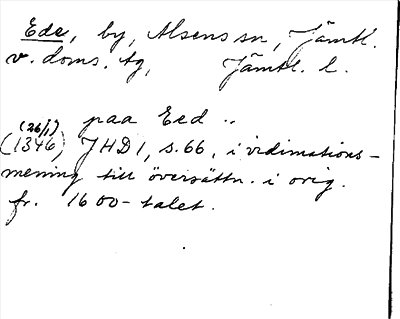 Ede, by, Alsens sn, Jämtl.
v. doms. tg, Jämtl. l.
paa Eed ..
(26/1)
(1346) JHD 1, s. 66, i vidimations-
mening till översättn. i orig.
fr. 1600-talet.